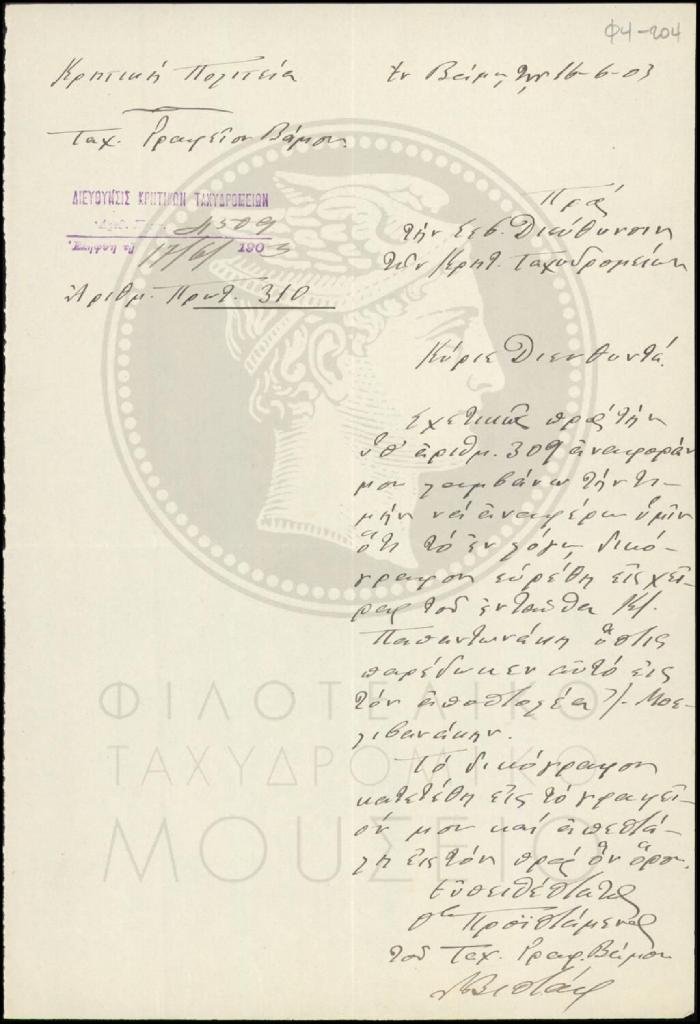 Φ4-204
Κρητική Πολιτεία
Ἐν Βάμῳ τῇ 16-6-03
Ταχ. Γραφεῖον Βάμου
ΔΙΕΥΘΥΝΣΙΣ ΚΡΗΤΙΚΩΝ ΤΑΧΥΔΡΟΜΕΙΩΝ
4509
17/6/ 190 3
Ἀριθμ. Πρωτ. 310
Πρός
τὴν Σεβ. Διεύθυνσιν
τῶν Κρητ. Ταχυδρομείων
Κύριε Διευθυντά.
Σχετικῶς πρὸς τὴν
ὑπ' ἀριθμ. 309 ἀναφοράν
μου λαμβάνω τὴν τι-
μὴν νὰ ἀναφέρω ὑμῖν
ὅτι τὸ ἐν λόγῳ δικό-
γραφον εὑρέθη εἰς χεῖ-
ρας τοῦ ἐνταῦθα
Παπαντωνάκη ὅστις
παρέδωκεν αὐτὸ εἰς
τὸν ἀποστολέα
λιβανάκην.
Τὸ δικόγραφον
κατετέθη εἰς τὸ γραφεῖ-
όν μου καὶ ἀπεστά-
λη εἰς τὸν πρὸς ὃν ὅρον.
Εὐπειθέστατος
Ὁ Προϊστάμενος
τοῦ Ταχ. Γραφ. Βάμου
ΦΙΛΟΤΕΛΙΚΟ
ΤΑΧΥΔΡΟΜΙΚΟ
ΜΟΥΣΕΙΟ